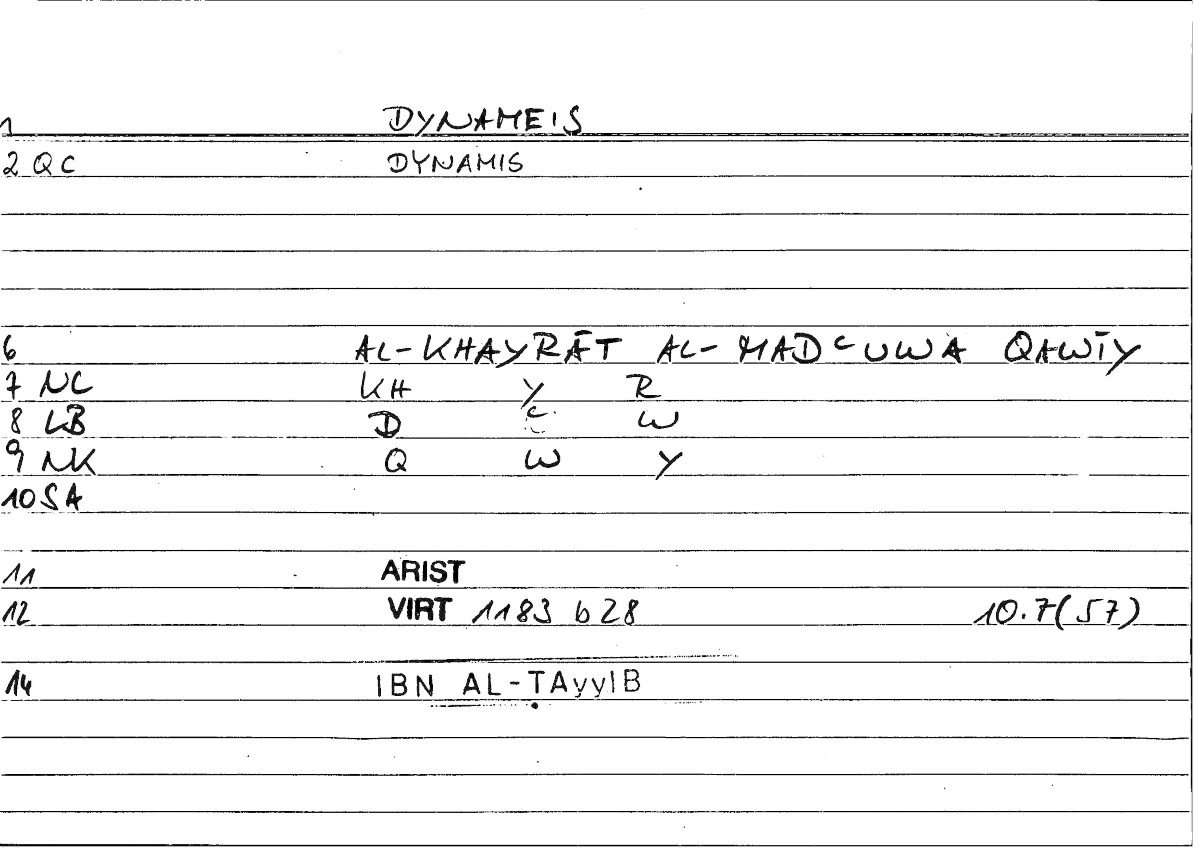 1 DYNAMEIS
2 QC DYNAMIS
6 AL-KHAYRĀT AL-MADᶜUWA QAWĪY
7 NC KH Y R
8 LB D ᶜ W
9 NK Q W Y
10 SA
11 ARIST
12 VIRT 1183 b 28 10.7(57)
14 IBN AL-ṬAyyIB